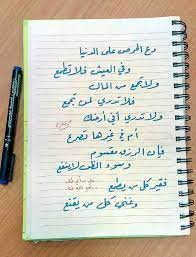 دع الحرص على الدنيا
وفي العيش فلا تطمع
ولا تجمع من المال
فلا تدري لمن تجمع
ولا تدري أفي أرضك
أم في غيرها تصرع
فإن الرزق مقسوم
وسوء الظن لا ينفع
فقير كل من يطمع
وغني كل من يقنع